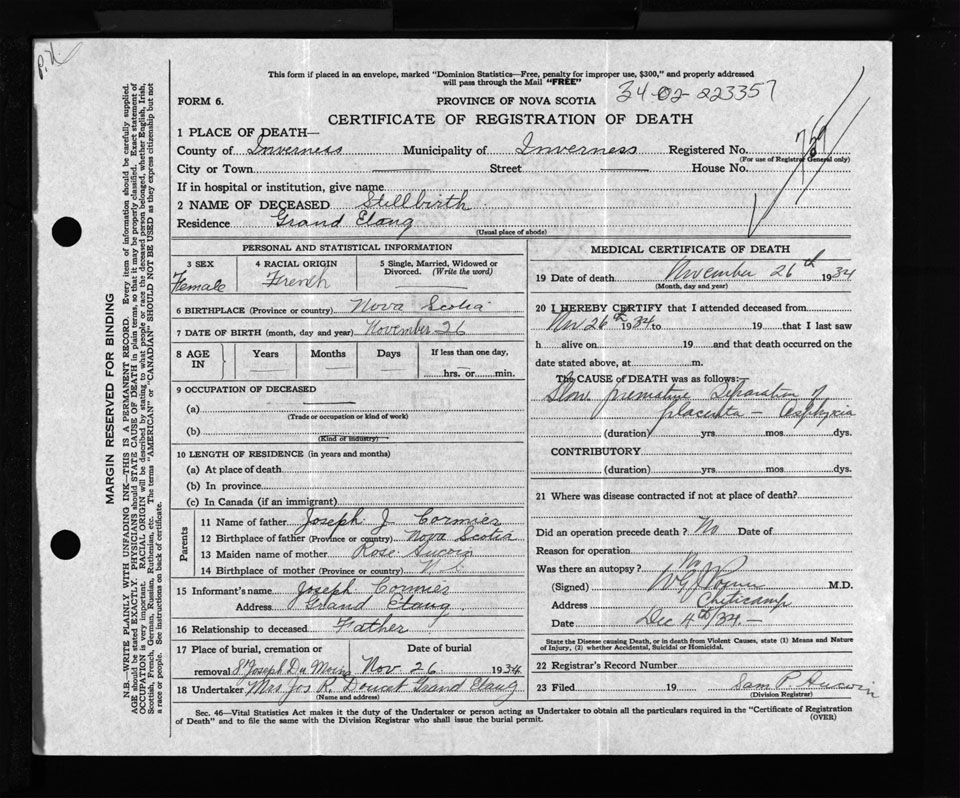 P.N.
This form if placed in an envelope, marked "Dominion Statistics—Free, penalty for improper use, $300," and properly addressed
will pass through the Mail "FREE"
34-02-223357
FORM 6.
PROVINCE OF NOVA SCOTIA
CERTIFICATE OF REGISTRATION OF DEATH
1 PLACE OF DEATH—
County of Inverness Municipality of Inverness Registered No. 769
(For use of Registrar General only)
City or Town Street House No.
If in hospital or institution, give name
2 NAME OF DECEASED Stillbirth
Residence Grand Etang
(Usual place of abode)
PERSONAL AND STATISTICAL INFORMATION
3 SEX Female
4 RACIAL ORIGIN French
5 Single, Married, Widowed or Divorced. (Write the word)
6 BIRTHPLACE (Province or country) Nova Scotia
7 DATE OF BIRTH (month, day and year) November 26
8 AGE IN Years Months Days If less than one day, hrs. or min.
9 OCCUPATION OF DECEASED
(a)
(Trade or occupation or kind of work)
(b)
(Kind of industry)
10 LENGTH OF RESIDENCE (in years and months)
(a) At place of death
(b) In province
(c) In Canada (if an immigrant)
Parents
11 Name of father Joseph J. Cormier
12 Birthplace of father (Province or country) Nova Scotia
13 Maiden name of mother Rose Aucoin
14 Birthplace of mother (Province or country) N.S.
15 Informant's name Joseph Cormier
Address Grand Etang
16 Relationship to deceased Father
17 Place of burial, cremation or Date of burial
removal St Joseph Du Moine Nov. 26 1934
18 Undertaker Mrs Jos R. Doucet Grand Etang
(Name and address)
MEDICAL CERTIFICATE OF DEATH
19 Date of death November 26th 1934
(Month, day and year)
20 I HEREBY CERTIFY that I attended deceased from
Nov 26th 1934 to 19 that I last saw
h alive on 19 and that death occurred on the
date stated above, at m.
The CAUSE of DEATH was as follows:—
Slow premature Separation of
placenta — Asphyxia
(duration) yrs. mos. dys.
CONTRIBUTORY
(duration) yrs. mos. dys.
21 Where was disease contracted if not at place of death?
Did an operation precede death? No Date of
Reason for operation
Was there an autopsy? No
(Signed) M.D.
Address Cheticamp
Date Dec 4th/34.—
State the Disease causing Death, or in death from Violent Causes, state (1) Means and Nature
of Injury, (2) whether Accidental, Suicidal or Homicidal.
22 Registrar's Record Number
23 Filed 19 Sam P. Aucoin
(Division Registrar)
Sec. 46—Vital Statistics Act makes it the duty of the Undertaker or person acting as Undertaker to obtain all the particulars required in the "Certificate of Registration
of Death" and to file the same with the Division Registrar who shall issue the burial permit.
(OVER)
MARGIN RESERVED FOR BINDING
N.B.—WRITE PLAINLY WITH UNFADING INK—THIS IS A PERMANENT RECORD. Every item of information should be carefully supplied.
AGE should be stated EXACTLY. PHYSICIANS should STATE CAUSE OF DEATH in plain terms, so that it may be properly classified. Exact statement of
OCCUPATION is very important. RACIAL ORIGIN will be described by stating to what people or race the deceased person belonged, whether English, Irish,
Scottish, French, German, Russian, Ruthenian, etc. The terms "AMERICAN" or "CANADIAN" SHOULD NOT BE USED as they express citizenship but not
a race or people. See instructions on back of certificate.